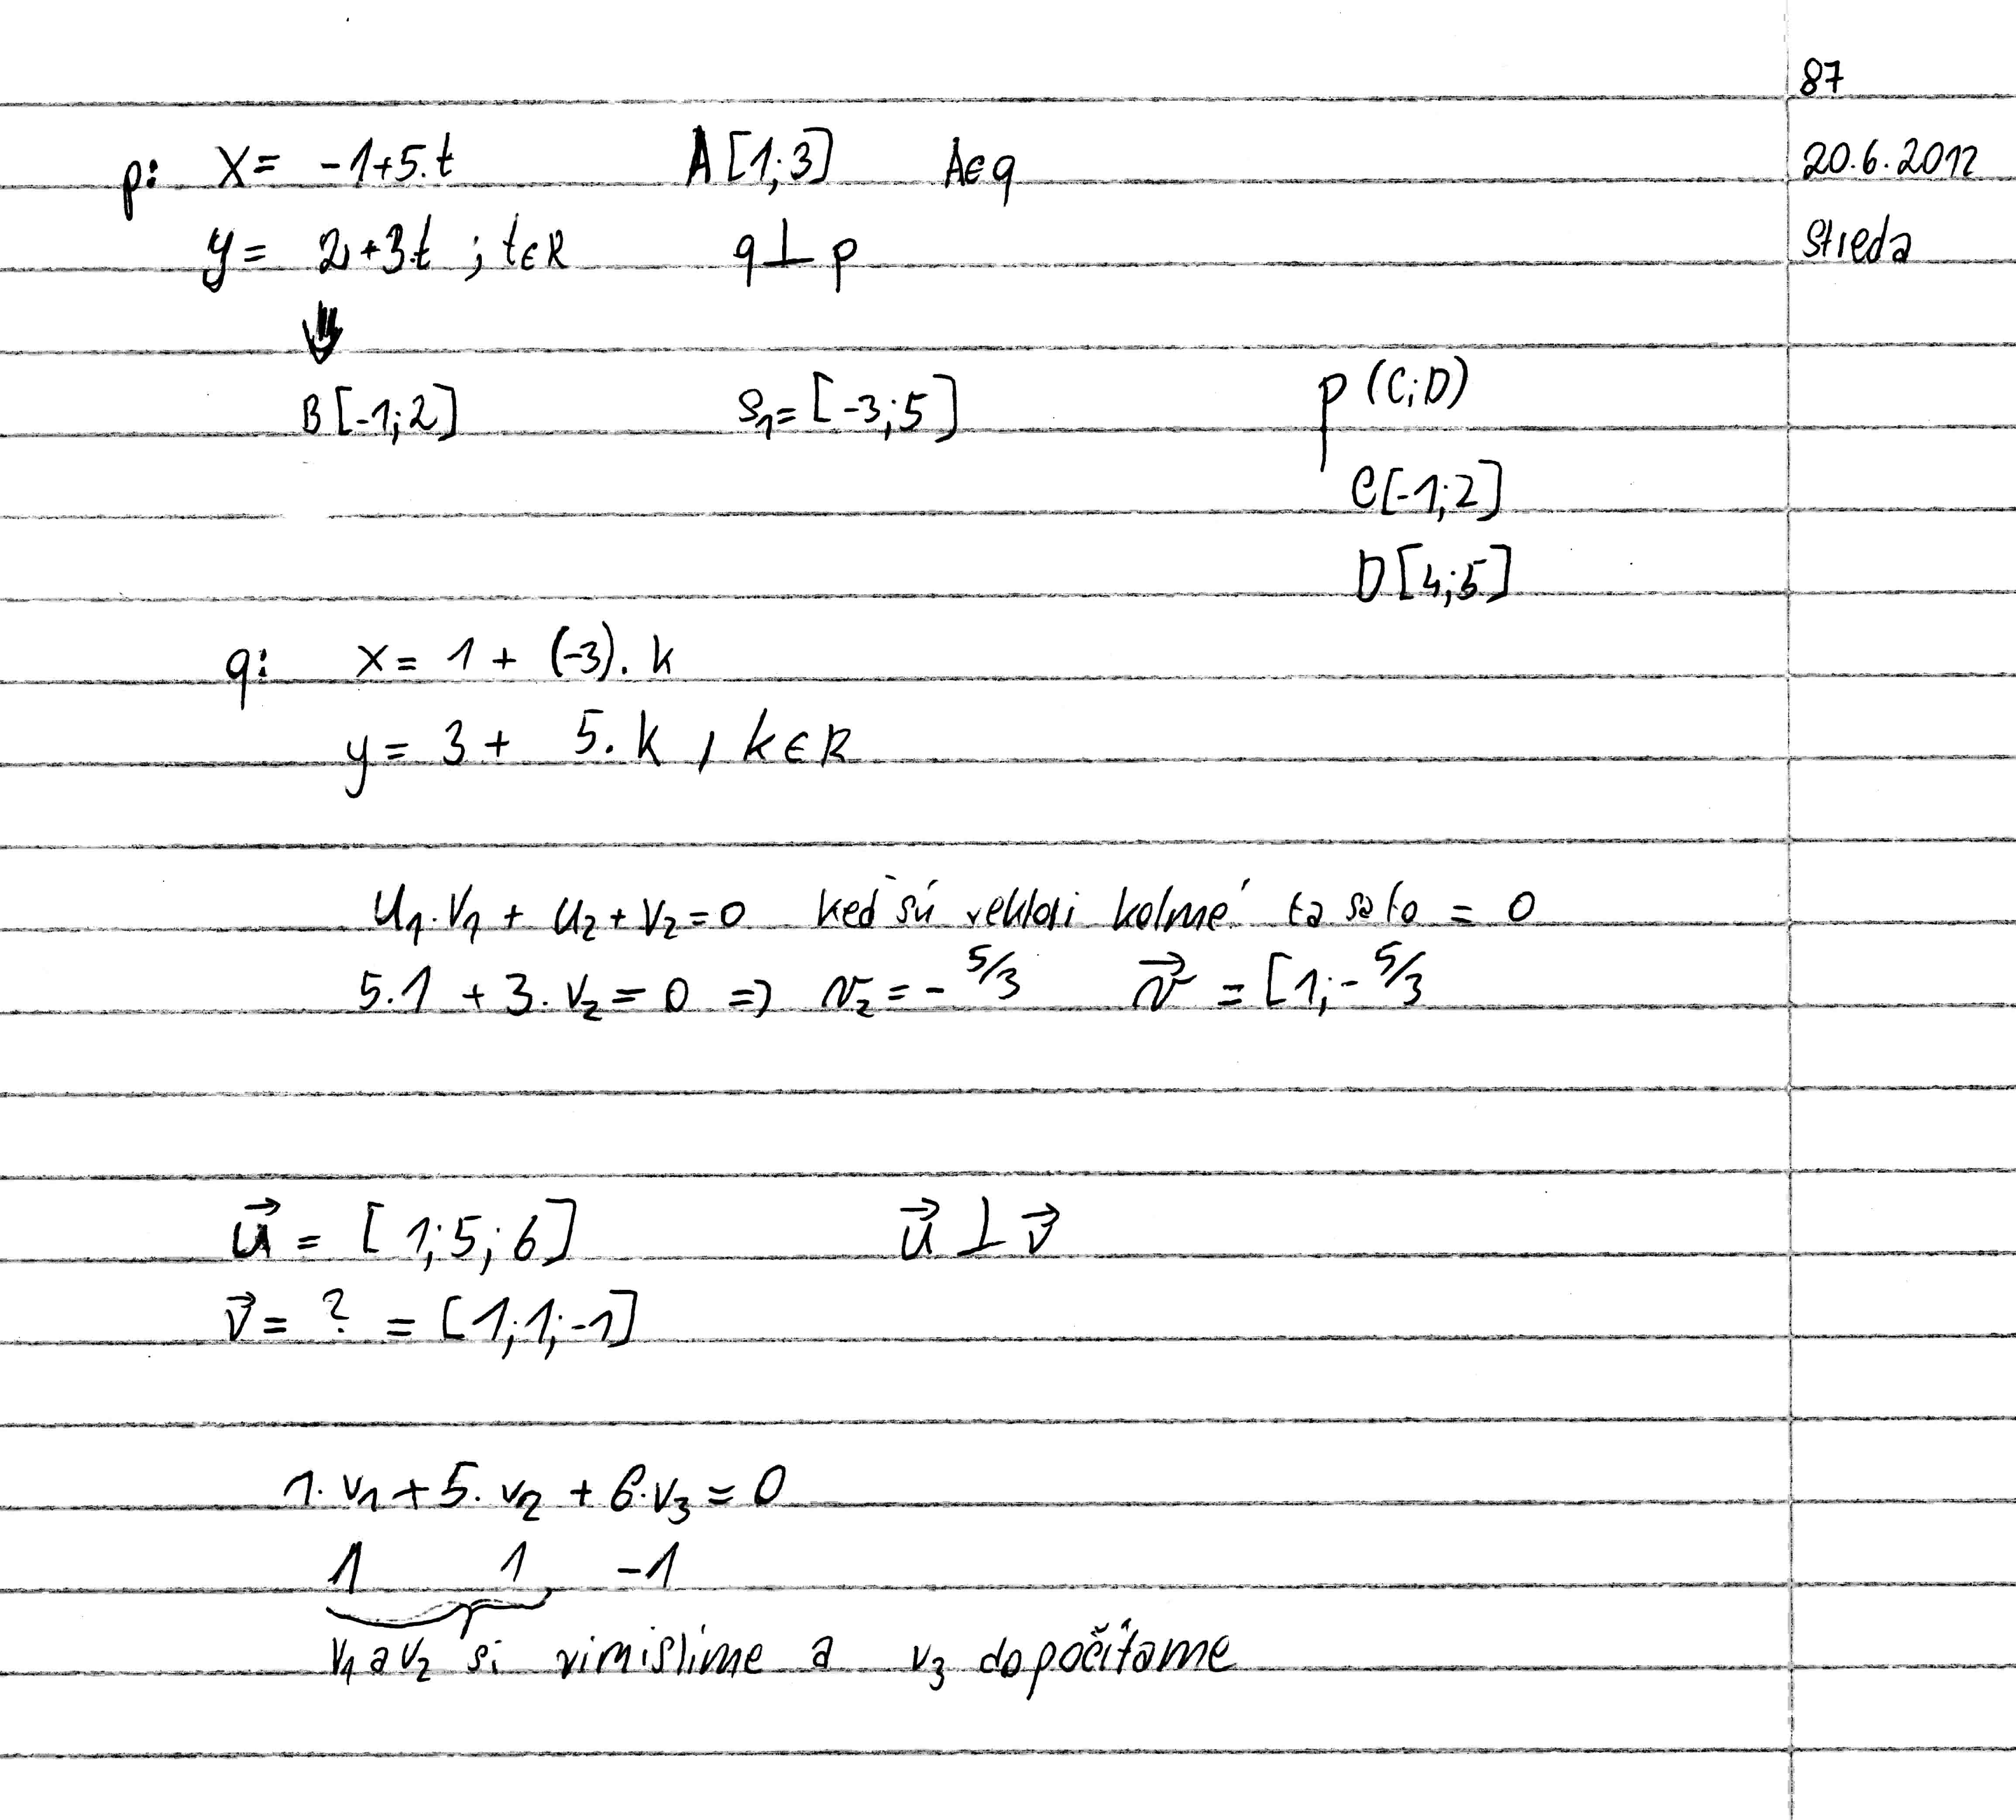 87
p: x = -1+5.t A [1;3] A∈q 20.6.2012
y = 2+3.t ; t∈R q⊥p streda
⇓
B [-1;2] S₁= [-3;5] p (C;D)
C[-1;2]
D[4;5]
q: x = 1 + (-3). k
y = 3 + 5. k , k∈R
u₁.v₁ + u₂+v₂=0 keď sú vektori kolmé ta sa to = 0
5.1 + 3. v₂ = 0 => v₂ = - 5/3 v⃗ = [1;- 5/3
u⃗ = [ 1;5;6] u⃗ ⊥ v⃗
v⃗ = ? = [1;1;-1]
1. v₁ + 5. v₂ + 6.v₃ = 0
1 1 -1
v₁ a v₂ si vimislime a v₃ dopočítame